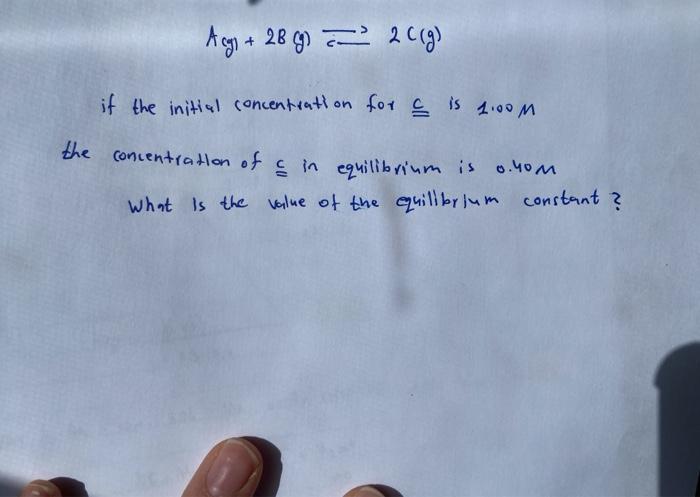 A(g) + 2B(g) ⇌ 2C(g)
if the initial concentration for c is 1.00 M
the concentration of c in equilibrium is 0.40M
What is the value of the equilibrium constant ?